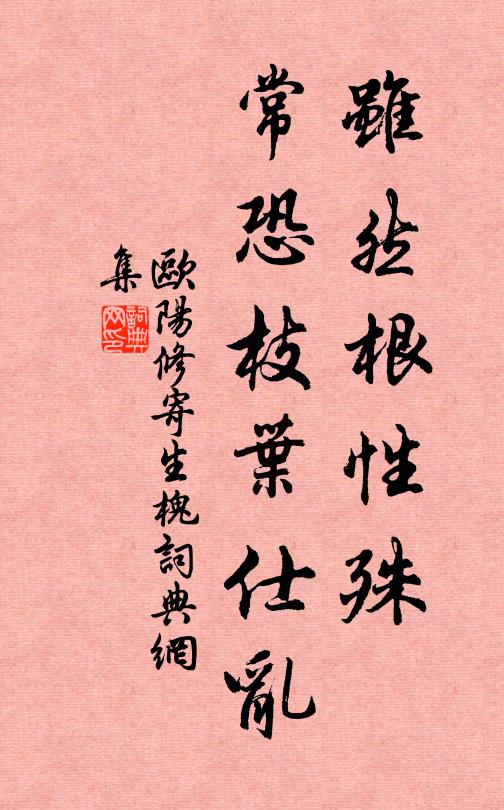 雖然根性殊
常恐枝葉仕亂
歐陽修寄生槐詞典網
集
詞典
网印